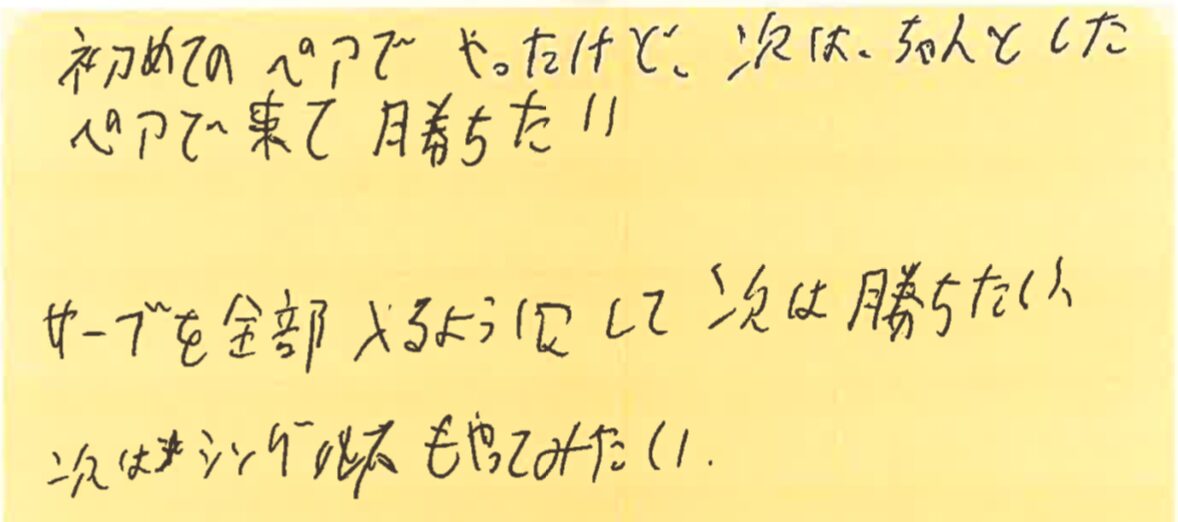 初めてのペアでやったけど、次は、ちゃんとした
ペアで来て勝ちたい
サーブを全部入るようにして次は勝ちたい
次はシングルスもやってみたい.